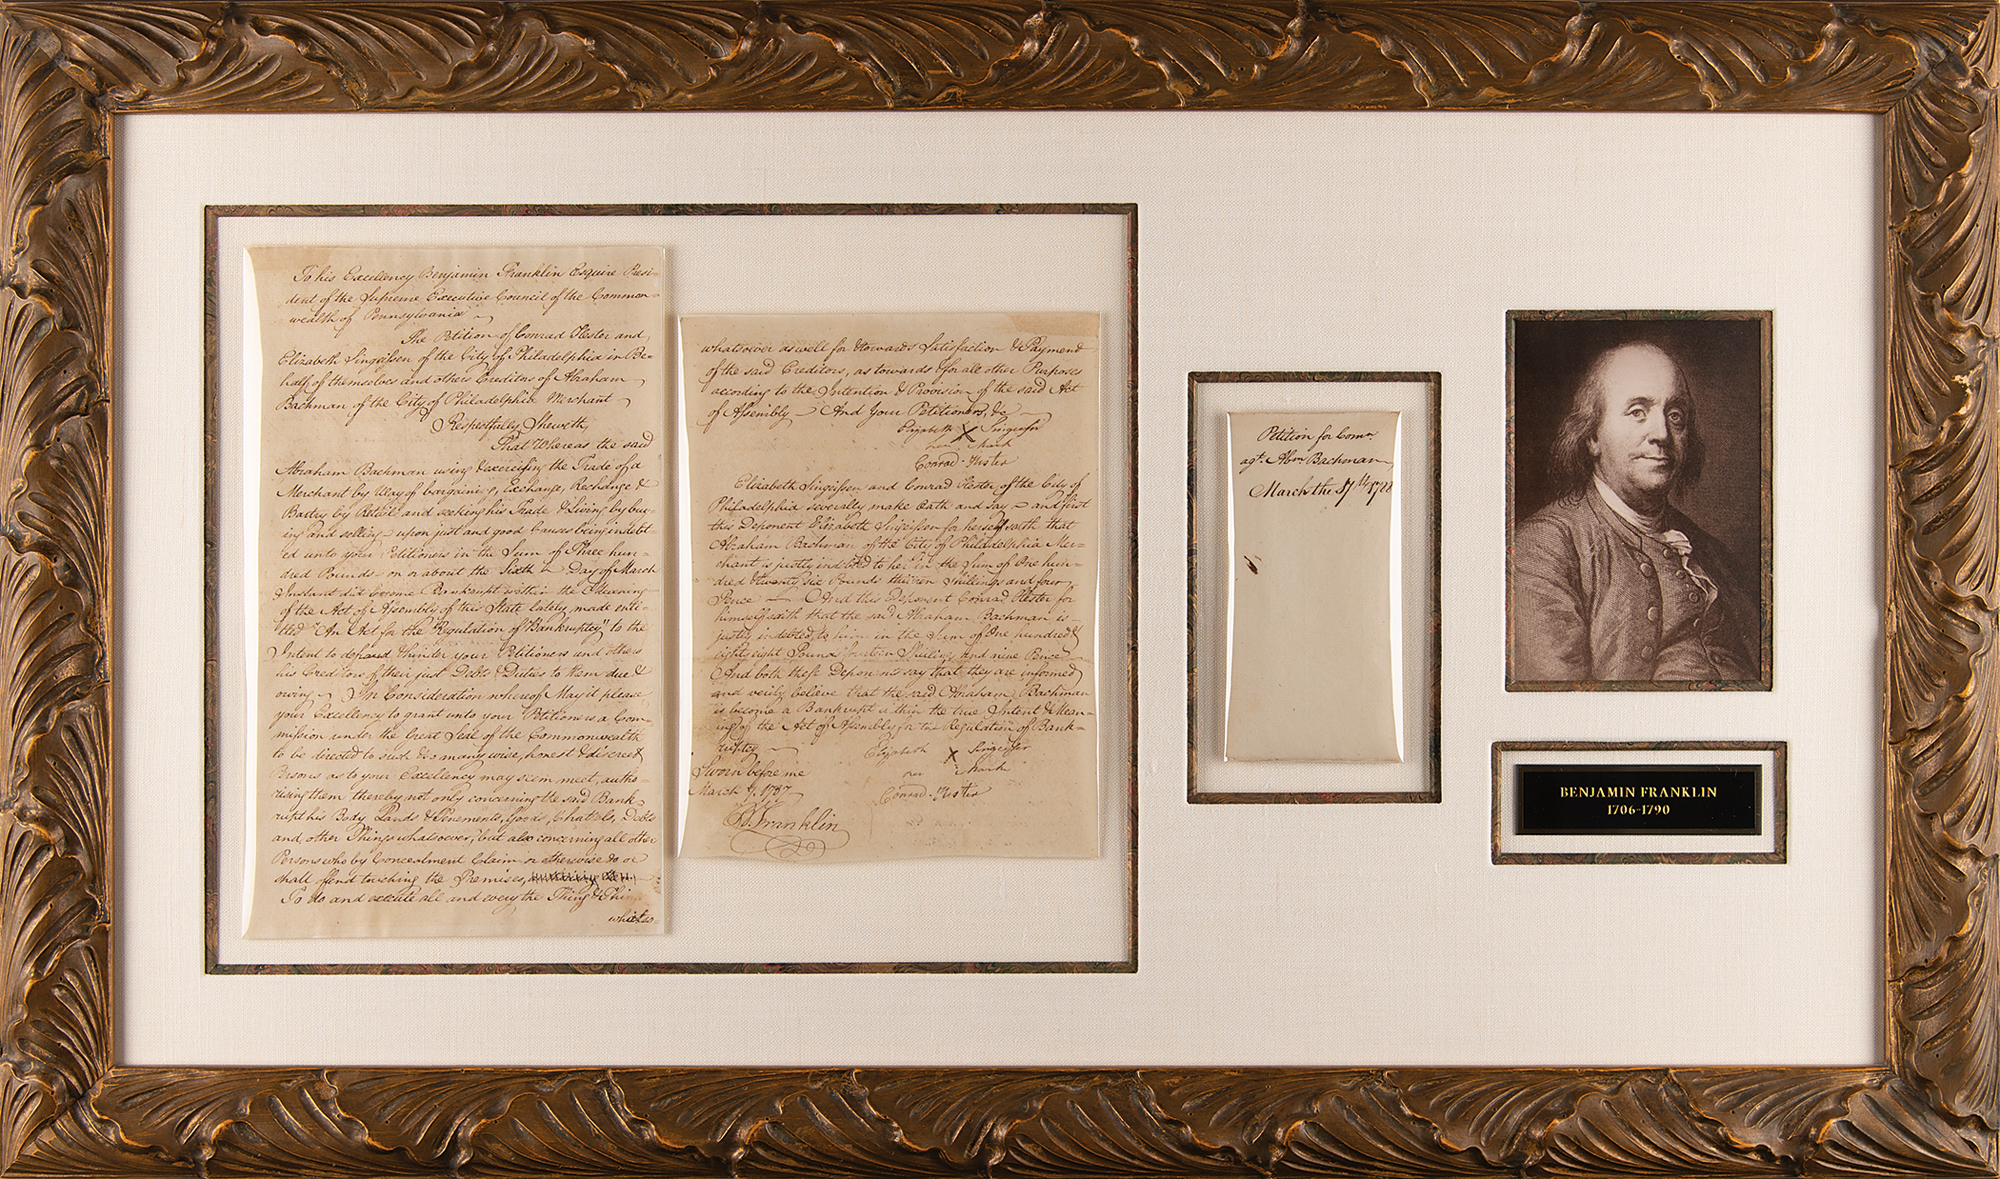 To his Excellency Benjamin Franklin Esquire Presi-
dent of the Supreme Executive Council of the Common-
wealth of Pennsylvania
The Petition of Conrad Hester and
Elizabeth Singeissen of the City of Philadelphia in Be-
half of themselves and other Creditors of Abraham
Bachman of the City of Philadelphia Merchant
Respectfully Sheweth,
That Whereas the said
Abraham Bachman using & exercising the Trade of a
Merchant by Way of bargaining, Exchange, Rechange &
Bartry by Retail and seeking his Trade & Living by buy-
ing and selling upon just and good Causes being indebt-
ed unto your Petitioners in the Sum of Three hun-
dred Pounds on or about the Sixth Day of March
Instant did become Bankrupt within the Meaning
of the Act of Assembly of this State lately made enti-
tled "An Act for the Regulation of Bankruptcy" to the
Intent to defraud & hinder your Petitioners and others
his Creditors of their just Debts & Duties to them due &
owing In Consideration whereof May it please
your Excellency to grant unto your Petitioners a Com-
mission under the Great Seal of the Commonwealth
to be directed to such & so many wise, honest & discreet
Persons as to your Excellency may seem meet, autho-
rising them thereby not only concerning the said Bank-
rupt his Body Lands & Tenements, Goods, Chattels, Debts
and other Things whatsoever, but also concerning all other
Persons who by Concealment Claim or otherwise do or
shall offend touching the Premises,
To do and execute all and every the Thing & Things
whatso-
whatsoever as well for & towards Satisfaction & Payment
of the said Creditors, as towards & for all other Purposes
according to the Intention & Provision of the said Act
of Assembly And Your Petitioners &c
Elizabeth X Singeisser
her Mark
Conrad Hester
Elizabeth Singeissen and Conrad Hester of the City of
Philadelphia severally make Oath and say and first
this Deponent Elizabeth Singeissen for herself saith that
Abraham Bachman of the City of Philadelphia Mer-
chant is justly indebted to her in the Sum of One hun-
dred & twenty six Pounds thirteen Shillings and four
Pence And this Deponent Conrad Hester for
himself saith that the said Abraham Bachman is
justly indebted to him in the Sum of One hundred &
eighty eight Pound fourteen Shillings And nine Pence
And both these Deponents say that they are informed
and verily believe that the said Abraham Bachman
is become a Bankrupt within the true Intent & Mean-
ing of the Act of Assembly for the Regulation of Bank-
ruptcy
Elizabeth X Singeisser
her Mark
Sworn before me
March 9, 1787
Conrad Hester
B. Franklin
Petition for Comn
agt. Abm Bachman
March the 17th 1788
BENJAMIN FRANKLIN
1706-1790